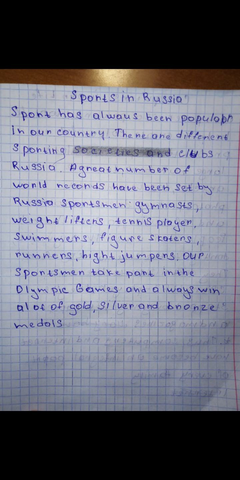 Sports in Russia
Sport has always been populaph
In our country. There are different
Sporting societies and clubs
Russia. Agreat number of
world records have been set by
Russia sportsmen: gymnasts,
weight lifters, tennis player,
swimmers, figure skaters,
runners, hight jumpers. our
sportsmen take part in the
Olympic Games and always win
alot of gold, silver and bronze
medals